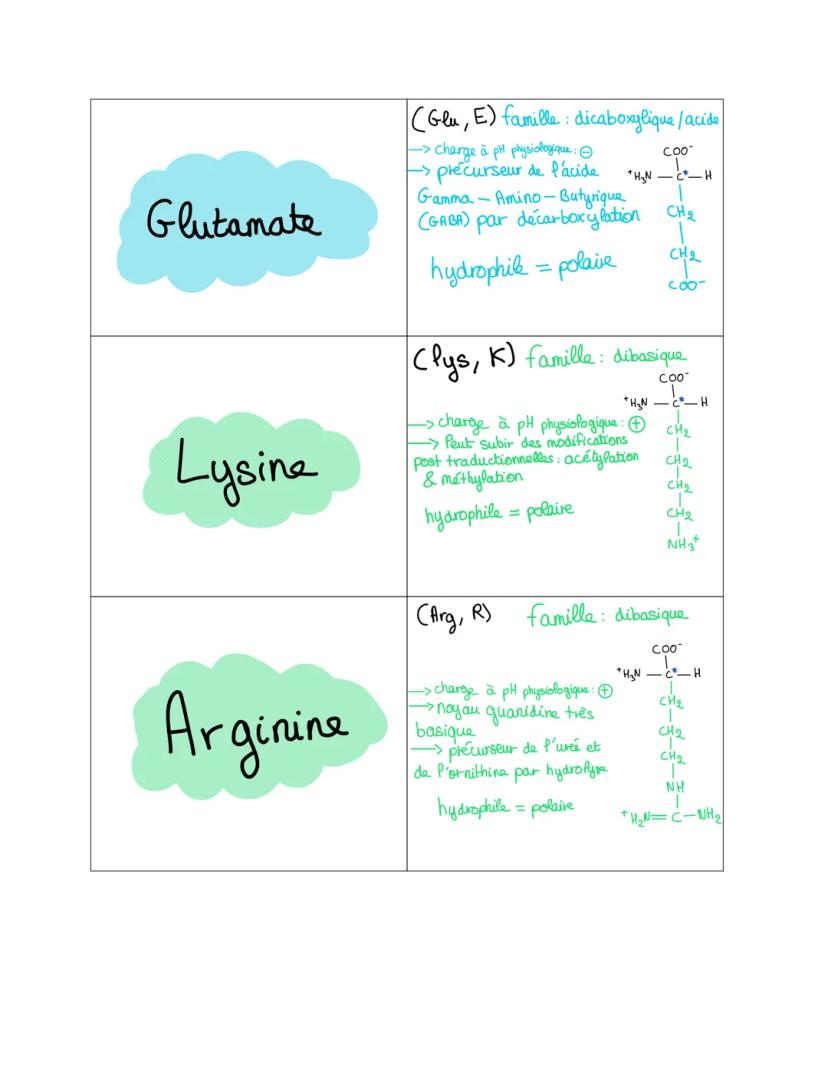 Glutamate
(Glu, E) famille : dicaboxylique/acide
→ charge à pH physiologique : ⊖
→ précurseur de l'acide
Gamma – Amino – Butyrique
(GABA) par décarboxylation
hydrophile = polaire
COO⁻
⁺H₃N — C* — H
CH₂
CH₂
COO⁻
Lysine
(lys, K) famille : dibasique
→ charge à pH physiologique : ⊕
→ Peut subir des modifications
post traductionnelles : acétylation
& méthylation
hydrophile = polaire
COO⁻
⁺H₃N — C* — H
CH₂
CH₂
CH₂
CH₂
NH₃⁺
Arginine
(Arg, R) famille : dibasique
→ charge à pH physiologique : ⊕
→ noyau guanidine très
basique
→ précurseur de l'urée et
de l'ornithine par hydrolyse
hydrophile = polaire
COO⁻
⁺H₃N — C* — H
CH₂
CH₂
CH₂
NH
⁺H₂N = C — NH₂